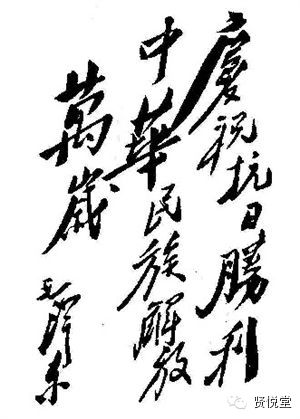 慶祝抗日勝利
中華民族解放
萬歲
毛澤东
贤悦堂